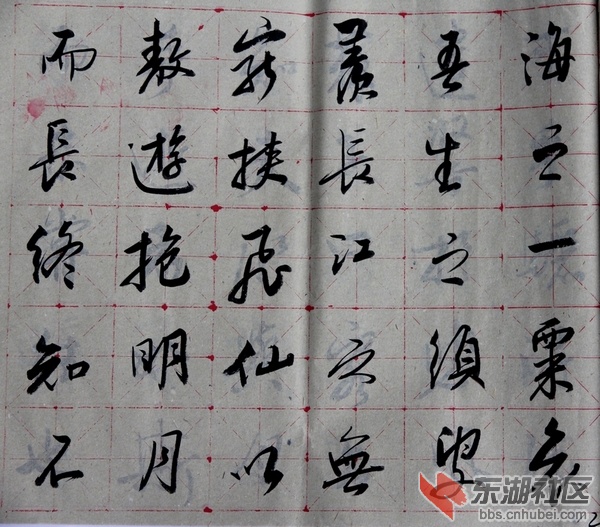 海之一粟哀
吾生之須臾
羨長江之無
窮挾飛仙以
敖遊抱明月
而長終知不
东湖社区
bbs.cnhubei.com